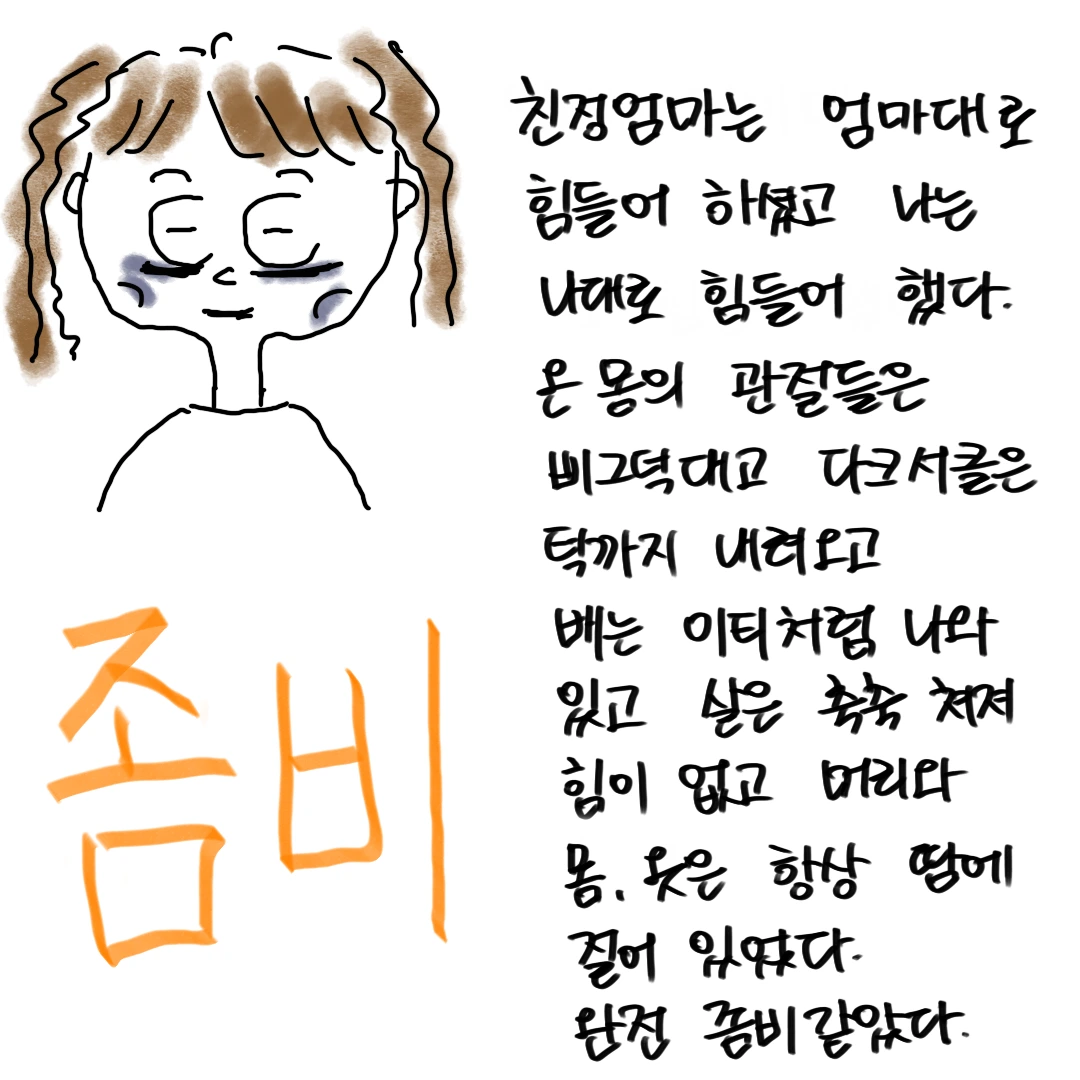 친정엄마는 엄마대로
힘들어 하셨고 나는
나대로 힘들어 했다.
온 몸의 관절들은
삐그덕대고 다크서클은
턱까지 내려오고
배는 이티처럼 나와
있고 살은 축축 쳐져
힘이 없고 머리와
몸, 옷은 항상 땀에
절어 있었다.
완전 좀비같았다.
좀비